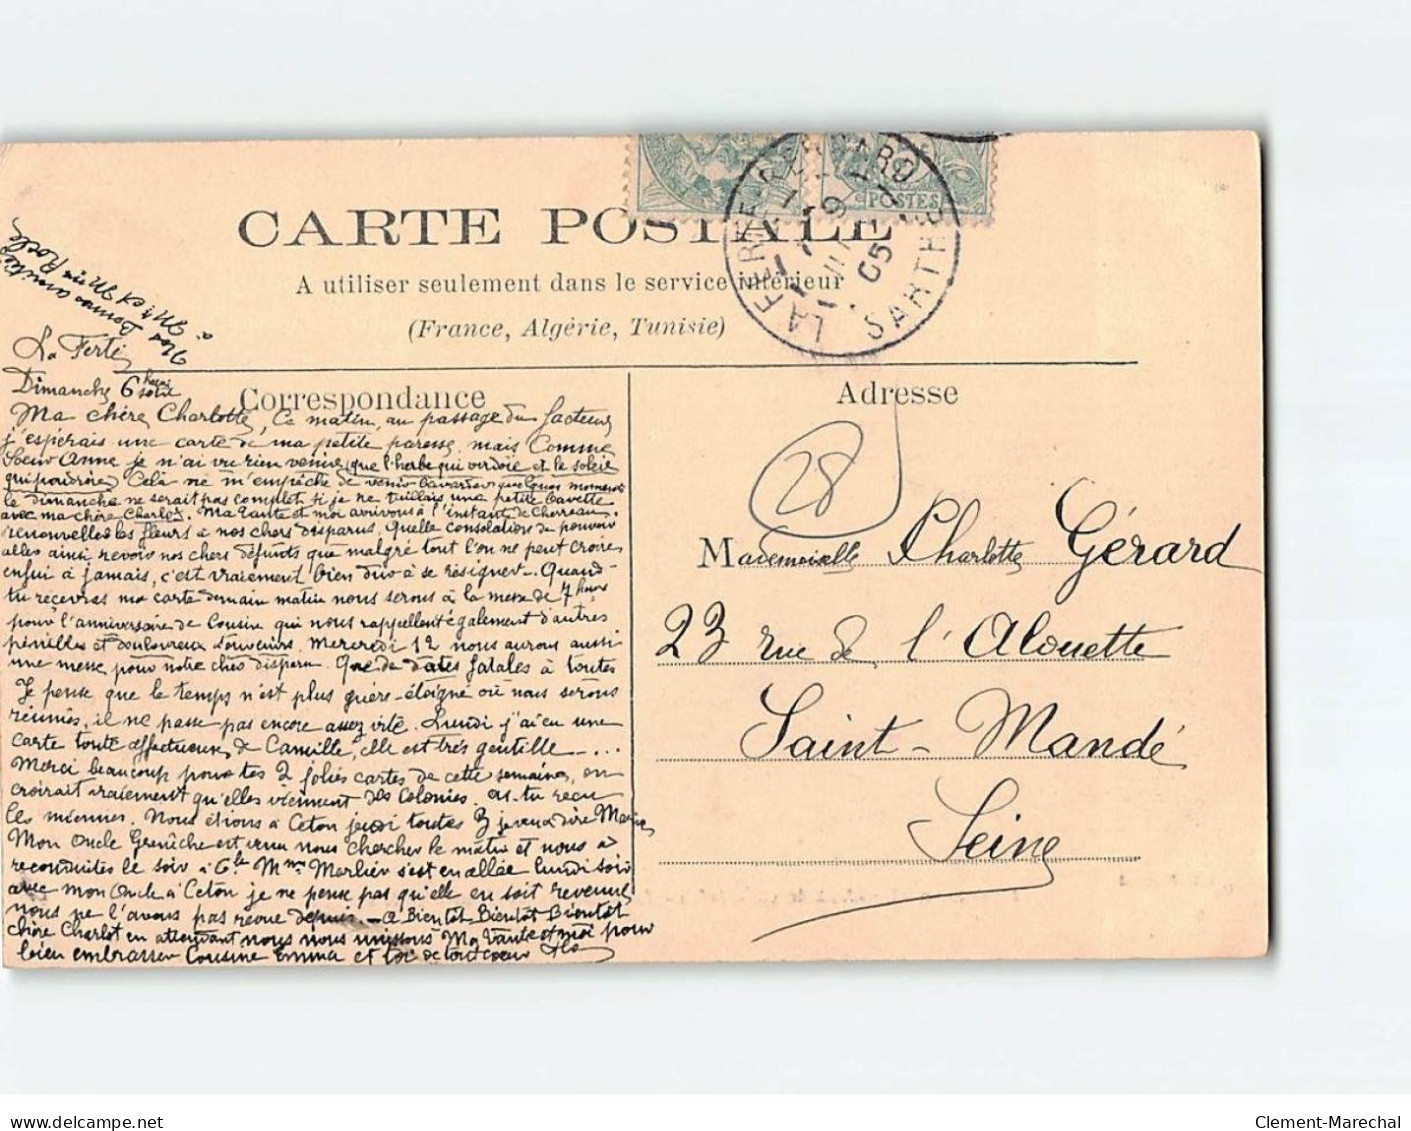 CARTE POSTALE
A utiliser seulement dans le service intérieur
(France, Algérie, Tunisie)
POSTES
LA FERTE-BERNARD
05
SARTHE
Nos bonnes amitiés
à Mr et Mme
La Ferté
Dimanche 6 heures soir
Correspondance
Adresse
Ma chère Charlotte, Ce matin, au passage du facteur
j'espérais une carte de ma petite paresse, mais Comme
Soeur Anne je n'ai vu rien venir, que l'herbe qui verdoie et le soleil
qui poudroie. Celà ne m'empêche de venir bavarder quelques moments
le dimanche ne serait pas complet si je ne taillais une petite bavette
avec ma chère Charlot. Ma Tante et moi arrivons à l'instant de Cherreau,
renouveller les fleurs à nos chers disparus. Quelle consolation de pouvoir
aller ainsi revoir nos chers défunts que malgré tout l'on ne peut croire
enfui à jamais, c'est vraiement bien dur à se résigner. Quand
tu recevras ma carte demain matin nous serons à la messe de 7 heures
pour l'anniversaire de Cousin qui nous rappellent également d'autres
pénibles et douloureux souvenirs. Mercredi 12 nous aurons aussi
une messe pour notre cher disparu. Que de dates fatales à toutes
Je pense que le temps n'est plus guère éloigné où nous serons
réunies, il ne passe pas encore assez vite. Lundi j'ai eu une
carte toute affectueuse de Camille, elle est très gentille - ...
Merci beaucoup pour tes 2 jolies cartes de cette semaine, on
croirait vraiement qu'elles viennent des Colonies. as-tu reçu
les miennes. Nous étions à Ceton jeudi toutes 3 je veux dire Marie
Mon Oncle Greniche est venu nous chercher le matin et nous a
reconduites le soir à 6h. Mme Marlier s'est en allée lundi soir
avec mon Oncle à Ceton je ne pense pas qu'elle en soit revenue
nous ne l'avons pas revue depuis. - A Bientôt Bientôt Bientôt
chère Charlot en attendant nous nous unissons Ma Tante et moi pour
bien embrasser Cousine Emma et toi de tout coeur
28
Mademoiselle Charlotte Gérard
23 rue de l'Alouette
Saint-Mandé
Seine
Clement-Marechal
www.delcampe.net